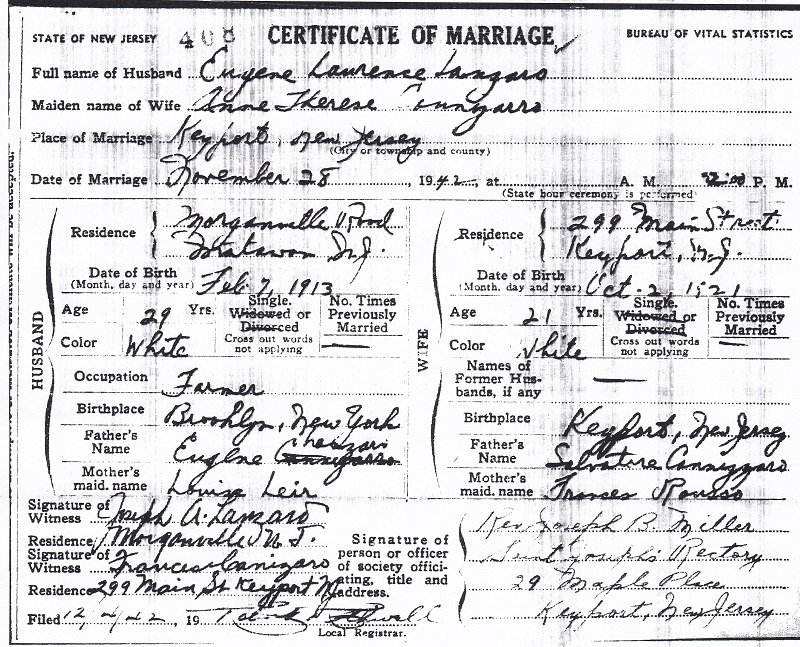 STATE OF NEW JERSEY 408 CERTIFICATE OF MARRIAGE ✓ BUREAU OF VITAL STATISTICS
Full name of Husband Eugene Laurence Lanzaro
Maiden name of Wife Anne Therese Cannizarro
Place of Marriage Keyport, New Jersey
(City or township and county)
Date of Marriage November 28, 1942, at A. M. P. M.
(State hour ceremony is performed)
HUSBAND
Residence Morganville Road
Matawan N.J.
Date of Birth
(Month, day and year) Feb. 7, 1913
Age 29 Yrs. Single. Widowed or Divorced No. Times Previously Married —
Color White Cross out words not applying
Occupation Farmer
Birthplace Brooklyn, New York
Father's Name Eugene
Mother's maid. name Louise Leir
WIFE
Residence 299 Main Street
Keyport, N.J.
Date of Birth
(Month, day and year) Oct. 2, 1921
Age 21 Yrs. Single. Widowed or Divorced No. Times Previously Married —
Color White Cross out words not applying
Names of Former Husbands, if any —
Birthplace Keyport, New Jersey
Father's Name Salvatore Cannizzaro
Mother's maid. name Frances Rousso
Signature of Witness Joseph A. Lanzaro
Residence Morganville N.J.
Signature of Witness Frances Canizaro
Residence 299 Main St Keyport NJ
Filed 12/4/42, 19
Local Registrar.
Signature of person or officer of society officiating, title and address.
Rev. Joseph B. Miller
Saint Joseph's Rectory
29 Maple Place
Keyport, New Jersey